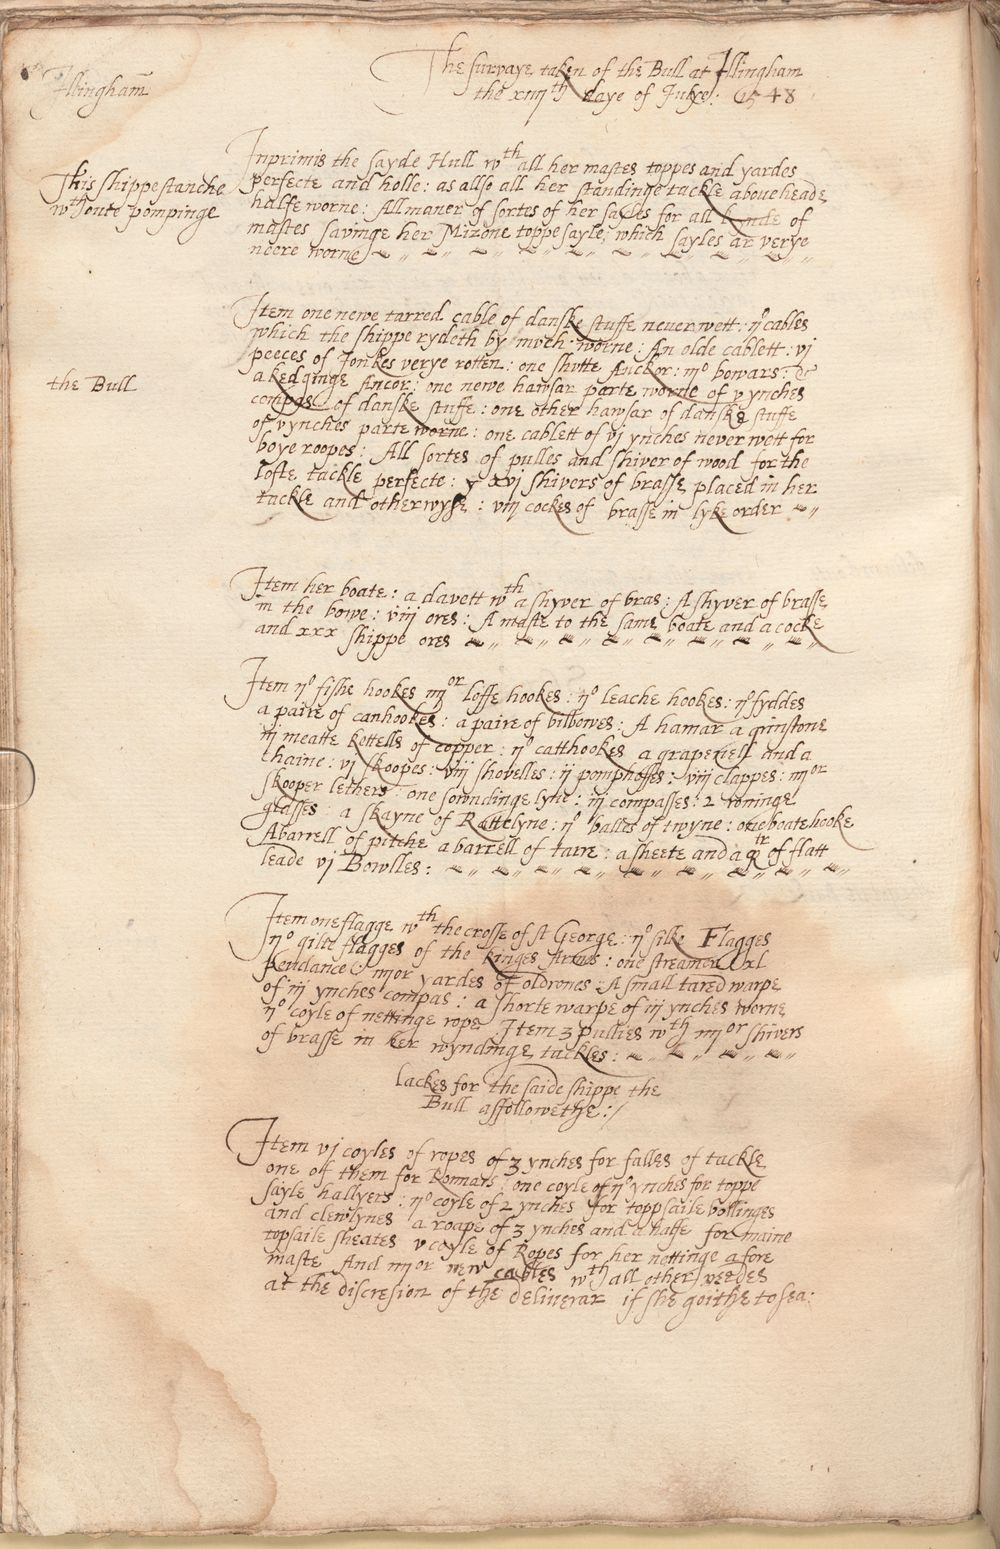 Jllingham̄
The survaye taken of the Bull at Jllingham
the xiiijth daye of Julye: 1548
This shippe stanche
wth oute pompinge
Inprimis the sayde Hull wth all her mastes toppes and yardes
perfecte and holle: as allso all her standinge tackle above heade
halfe worne: All maner of sortes of her sayles for all kynde of
mastes savinge her Mizone toppe sayle, which sayles ar verye
neere worne
the Bull
Item one newe tarred cable of danske stuffe never wett: ijo cables
which the shippe rydeth by mvch worne: An olde cablett: vj
peeces of Jonkes verye rotten: one shutte Anckor: iijo bowars: &
a kedginge Ancor: one newe hawsar parte worne of v ynches
compas of danske stuffe: one other hawsar of danske stuffe
of v ynches parte worne: one cablett of vj ynches never wett for
boye roopes: All sortes of pulles and shiver of wood for the
lofte tackle perfecte: xvj shivers of brasse placed in her
tackle and otherwyse: viij cockes of brasse in lyke order
Item her boate: a davett wth a shyver of bras: A shyver of brasse
in the bowe: viij ores: A maste to the same boate and a cocke
and xxx shippe ores
Item ijo fishe hookes iiijor loffe hookes: ijo leache hookes: ijo fyddes
a paire of canhookes: a paire of bilbowes: A hamar a grinstone
iij meatte kettells of copper: ijo catthookes a grapenell and a
chaine: vj skoopes: viij shovelles: ij pomphoses: viij clappes: iiijor
skooper lethers: one sowndinge lyne: iij compasses: 2 roninge
glasses: a skayne of Rattelyne: ijo balles of twyne: one boate hooke
A barrell of pitche a barrell of tarre: a sheete and a qrtr of flatt
leade vj Bowlles:
Item one flagge wth the crosse of st George: ijo silke Flagges
ijo gilte flagges of the kinges Armes: one streamer: xl
Pendance: iiijor yardes of oldrones: A small tared warpe
of iij ynches compas: a shorte warpe of iij ynches worne
ijo coyle of nettinge rope Item 3 pullies wth iiijor shivers
of brasse in her wyndinge tackles:
lackes for the saide shippe the
Bull as followethe:/
Item vj coyles of ropes of 3 ynches for falles of tackle
one of them for Ronnars: one coyle of ijo ynches for toppe
sayle hallyers: ijo coyle of 2 ynches for toppsaile bollinges
and clewlynes a roape of 3 ynches and a halfe for maine
topsaile sheates v coyle of Ropes for her nettinge afore
maste And iiijor new cables wth all other nedes
at the discresion of the deliverar if she goithe to sea: